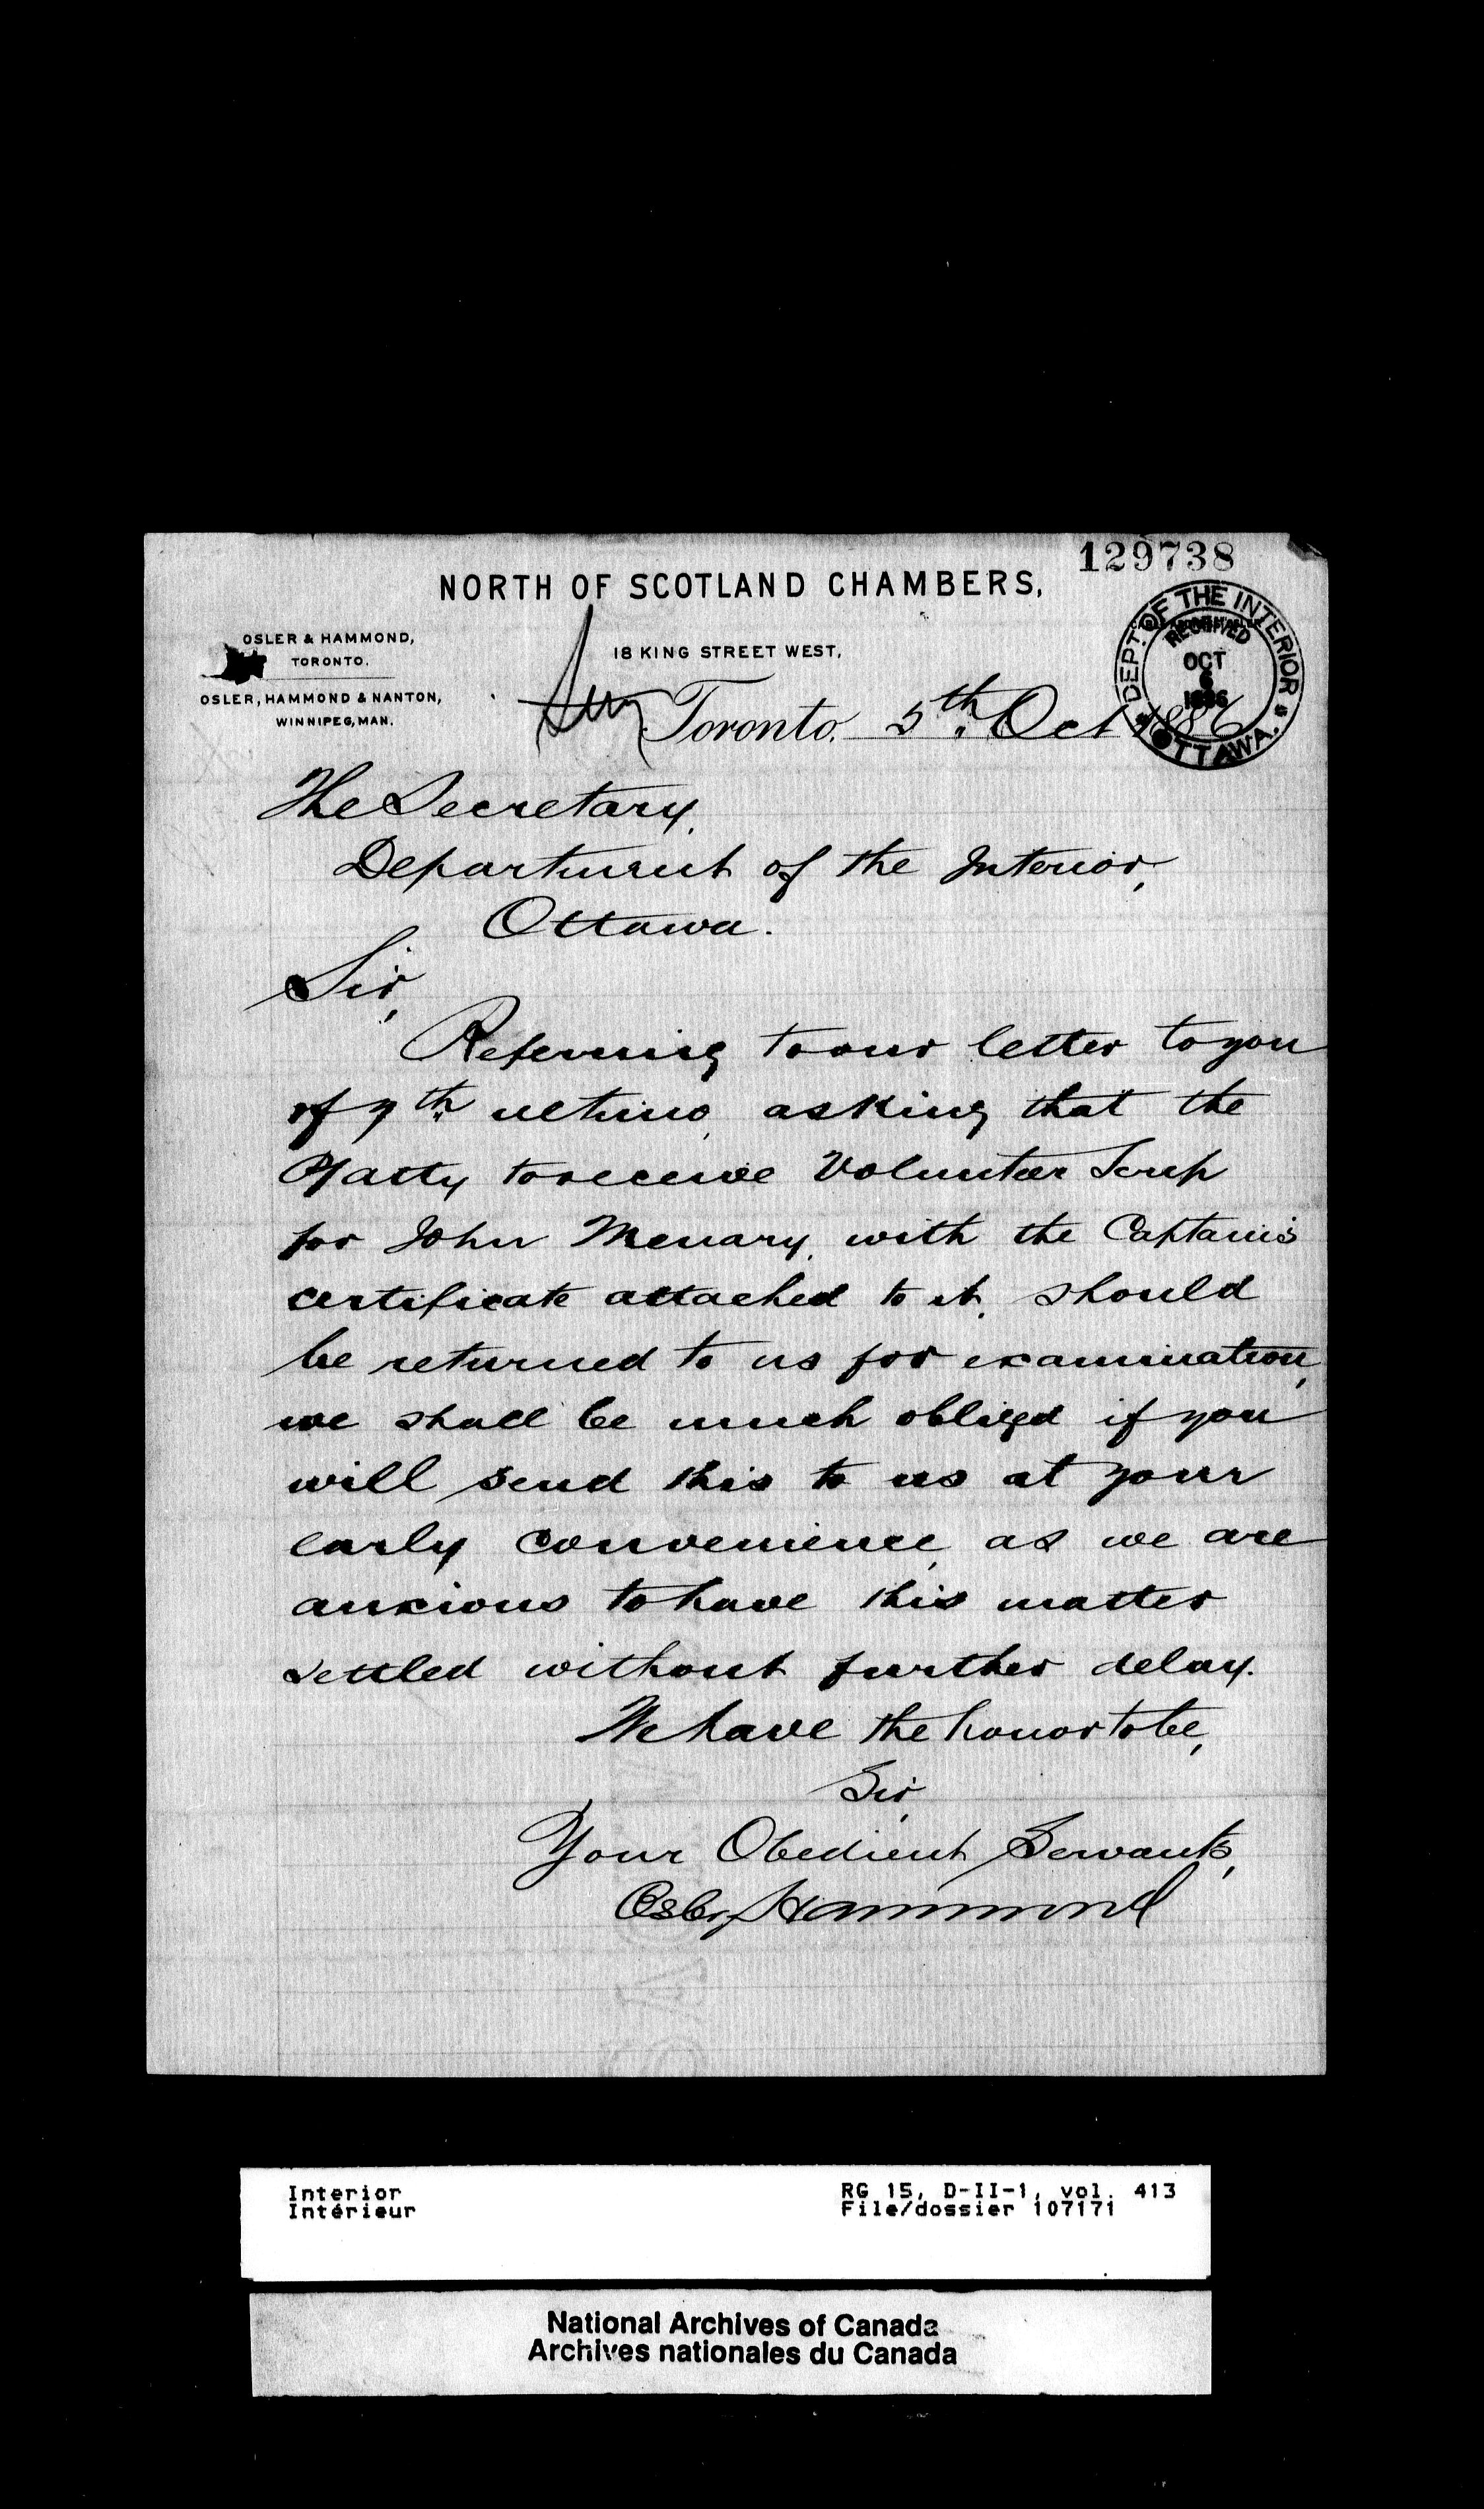 129738
NORTH OF SCOTLAND CHAMBERS,
OSLER & HAMMOND,
TORONTO.
OSLER, HAMMOND & NANTON,
WINNIPEG, MAN.
18 KING STREET WEST,
DEPT. OF THE INTERIOR
RECEIVED
OCT
6
1886
OTTAWA.
Toronto, 5th. Oct 1886
The Secretary,
Department of the Interior,
Ottawa.
Sir,
Referring to our letter to you
of 9th. ultimo, asking that the
to receive Volunteer Scrip
for John Menary, with the Captain's
certificate attached to it, should
be returned to us for examination,
we shall be much obliged if you
will send this to us at your
early convenience, as we are
anxious to have this matter
settled without further delay.
We have the honor to be,
Sir,
Your Obedient Servants,
Osler Hammond
Interior
Intérieur
RG 15, D-II-1, vol. 413
File/dossier 107171
National Archives of Canada
Archives nationales du Canada